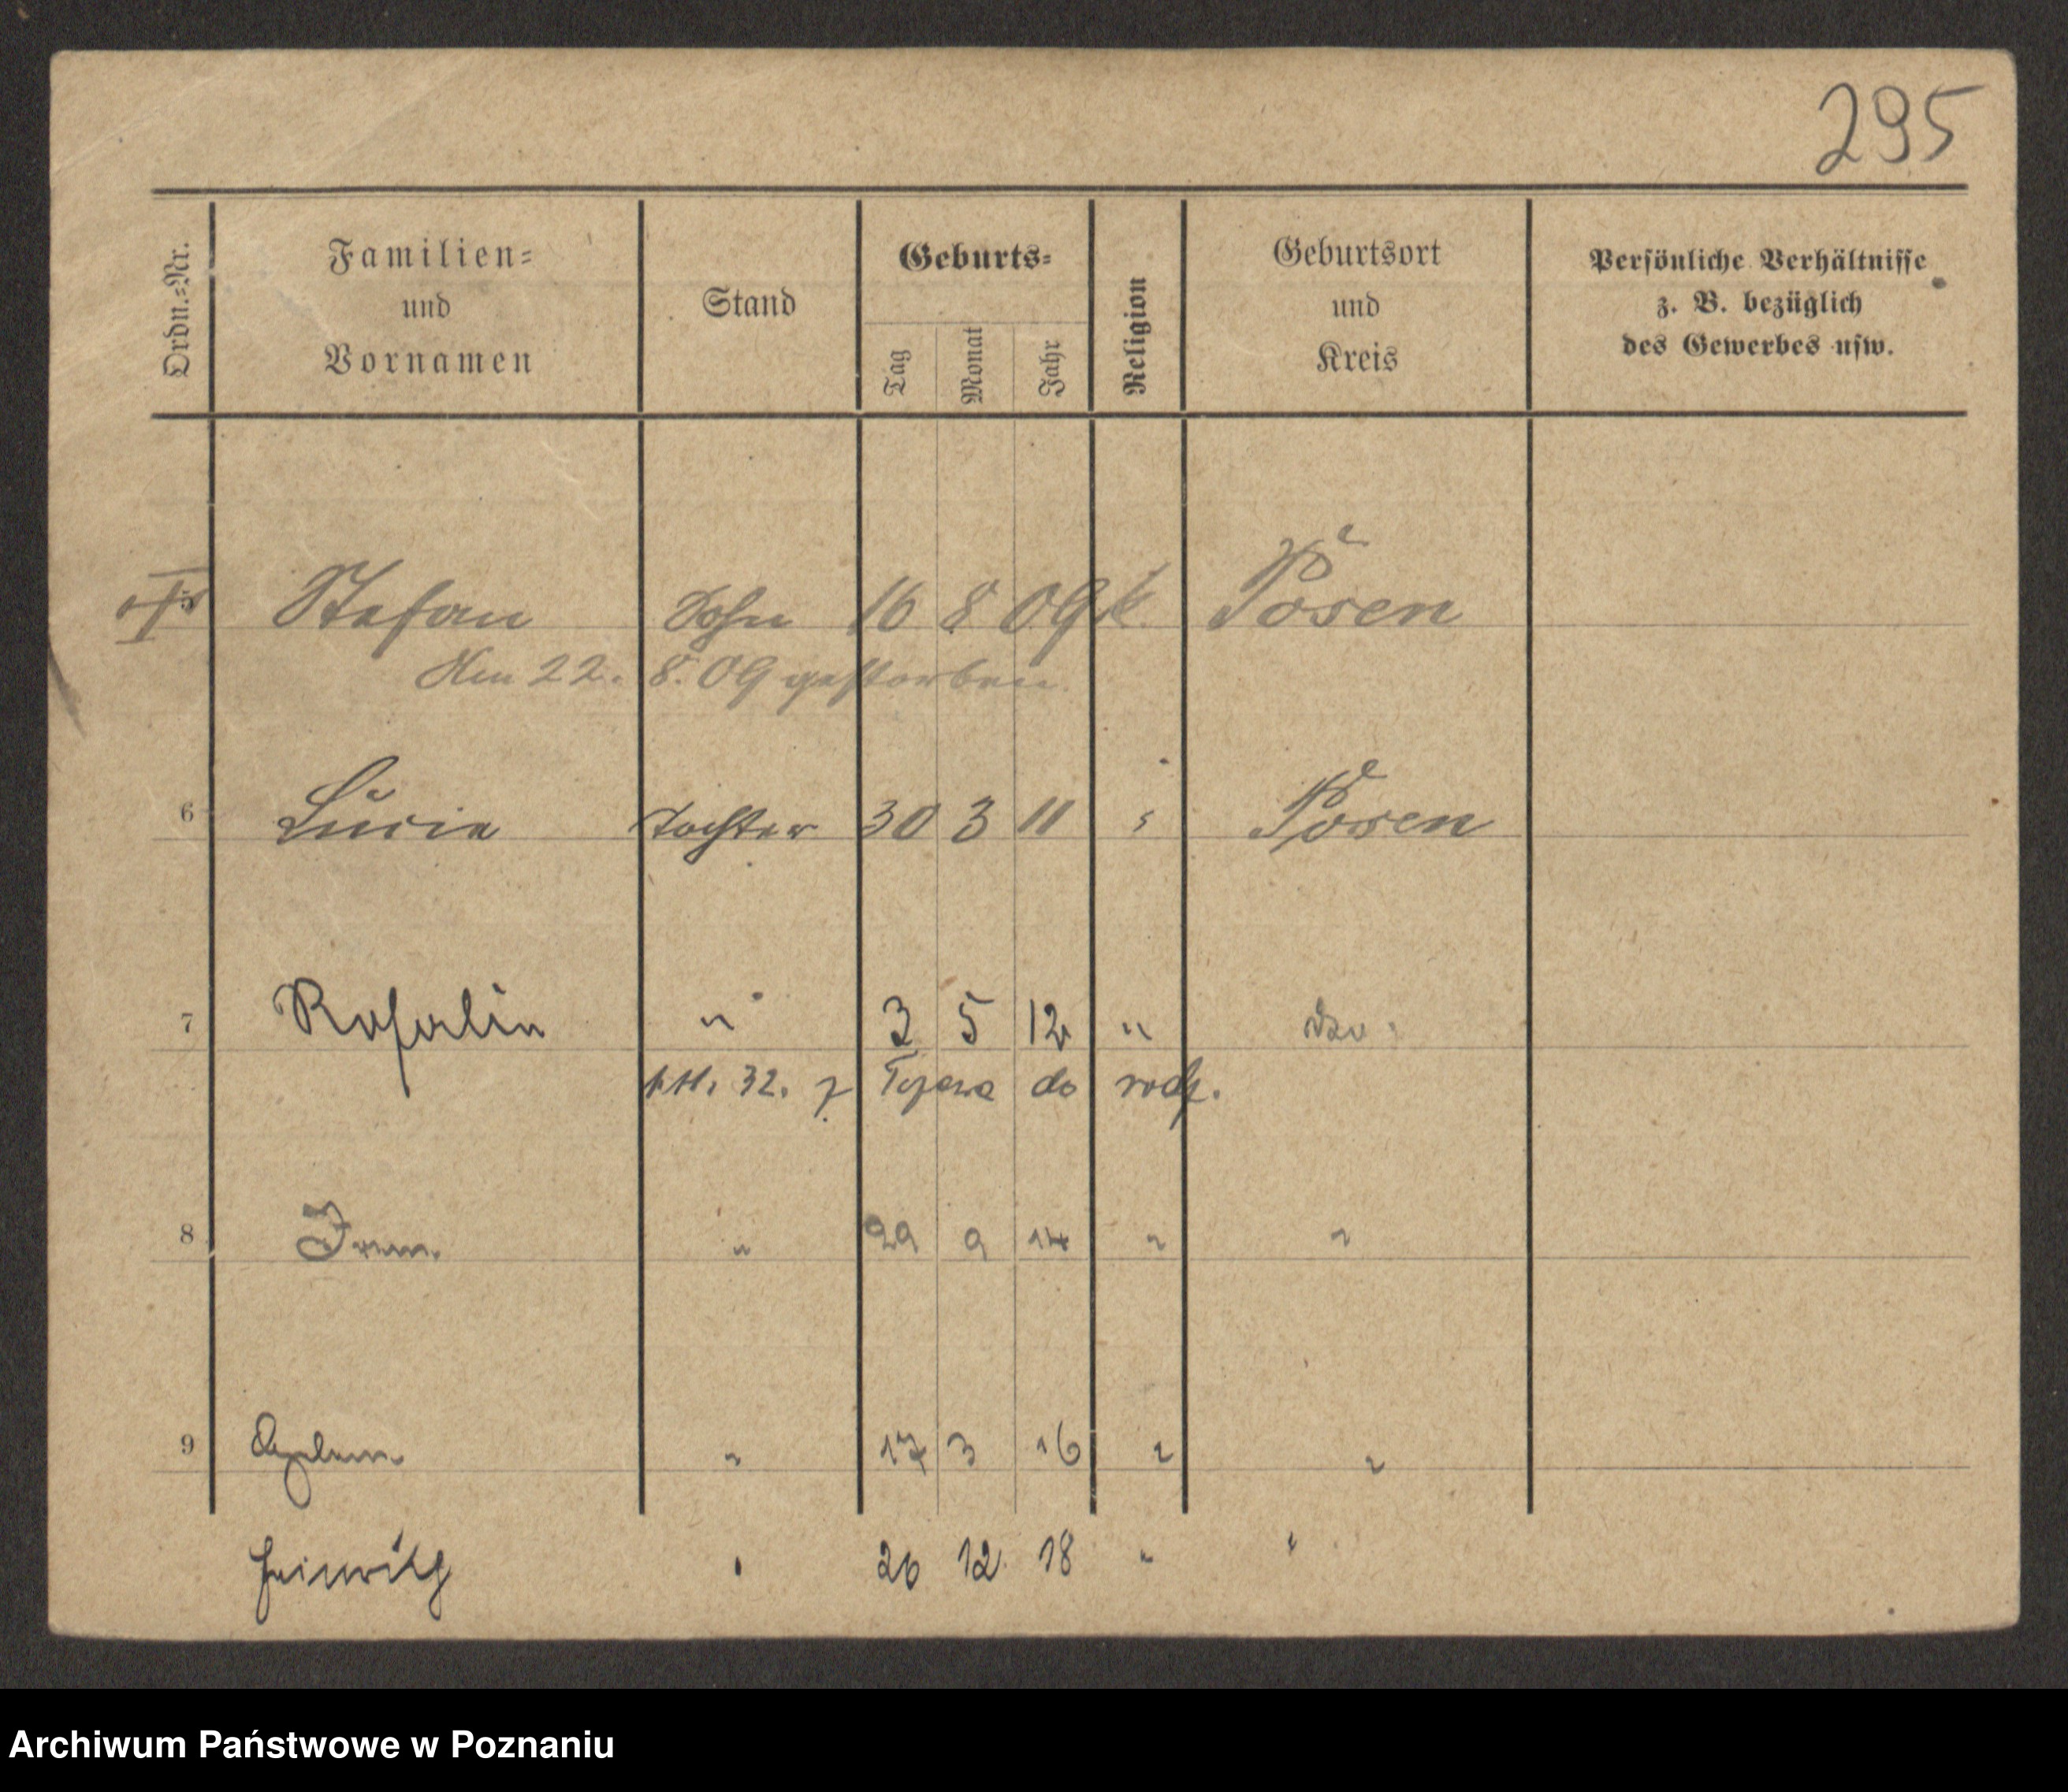 295
Ordn.=Nr. Familien= und Vornamen Stand Geburts= Tag Monat Jahr Religion Geburtsort und Kreis Persönliche Verhältnisse z. B. bezüglich des Gewerbes usw.
Stefan Sohn 16 8 09 k. Posen
Am 22. 8. 09 gestorben
6 Lucie Tochter 30 3 11 " Posen
7 Rosalie " 3 5 12 "
32. z do rodz.
8 " 29 9 14 " "
9 " 17 3 16 " "
Heinrich " 26 12 18 " "
Archiwum Państwowe w Poznaniu